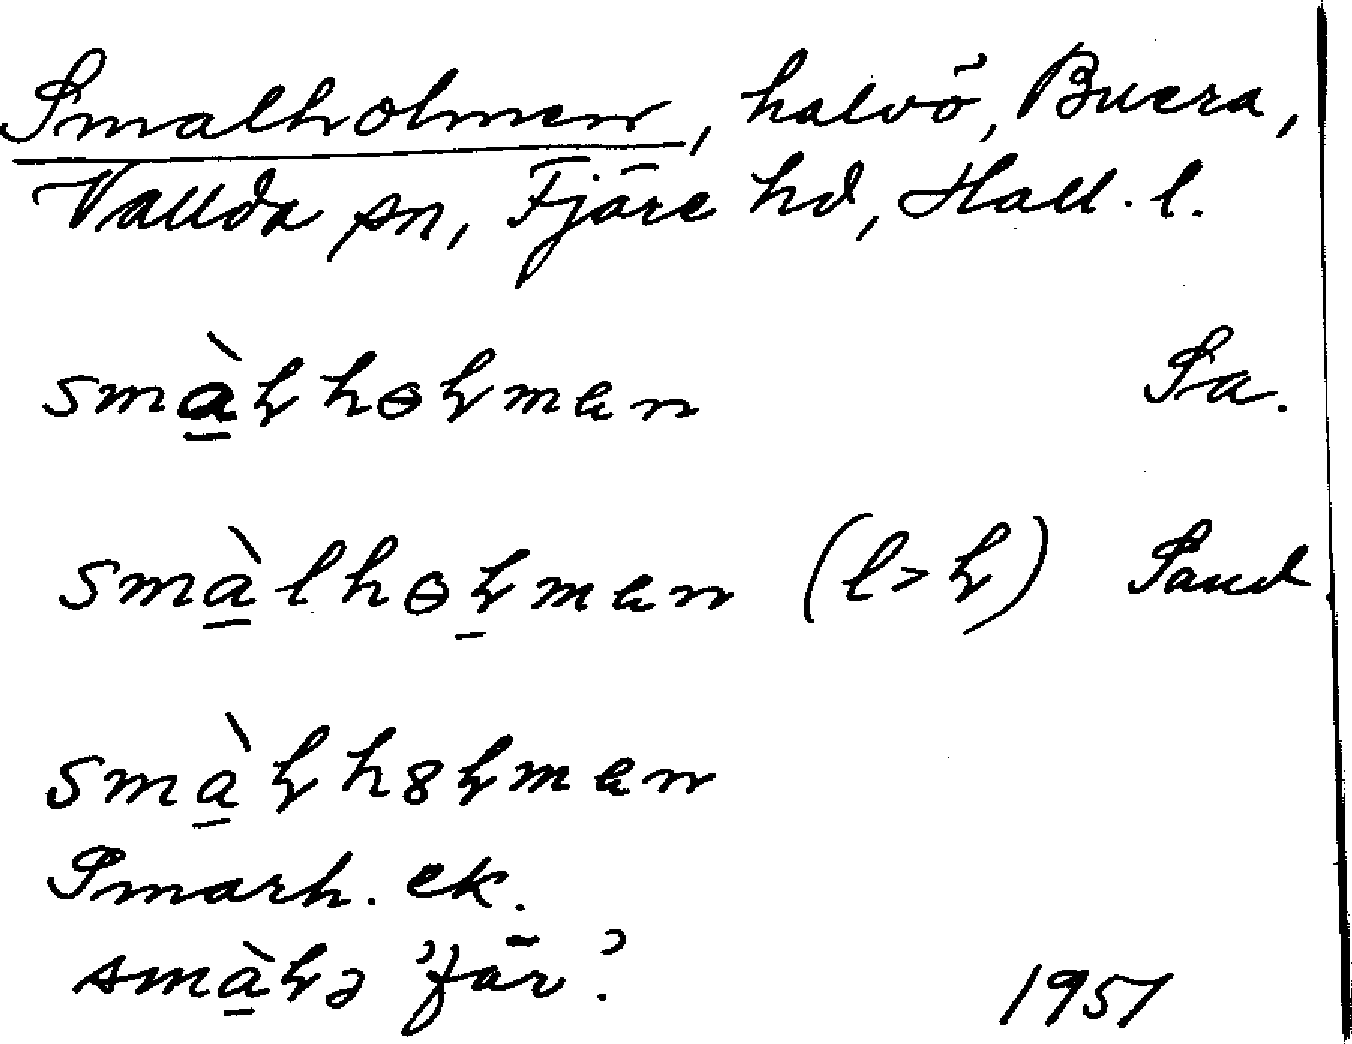 Smalholmen, halvö, Buera,
Vallda sn, Fjäre hd, Hall. l.
smàɽhɵɽmen Sa.
smàlhɵɽmen (l>ɽ) Sand
smàɽh8ɽmen
Smarh. ek.
smàɽə 'får'.
1951